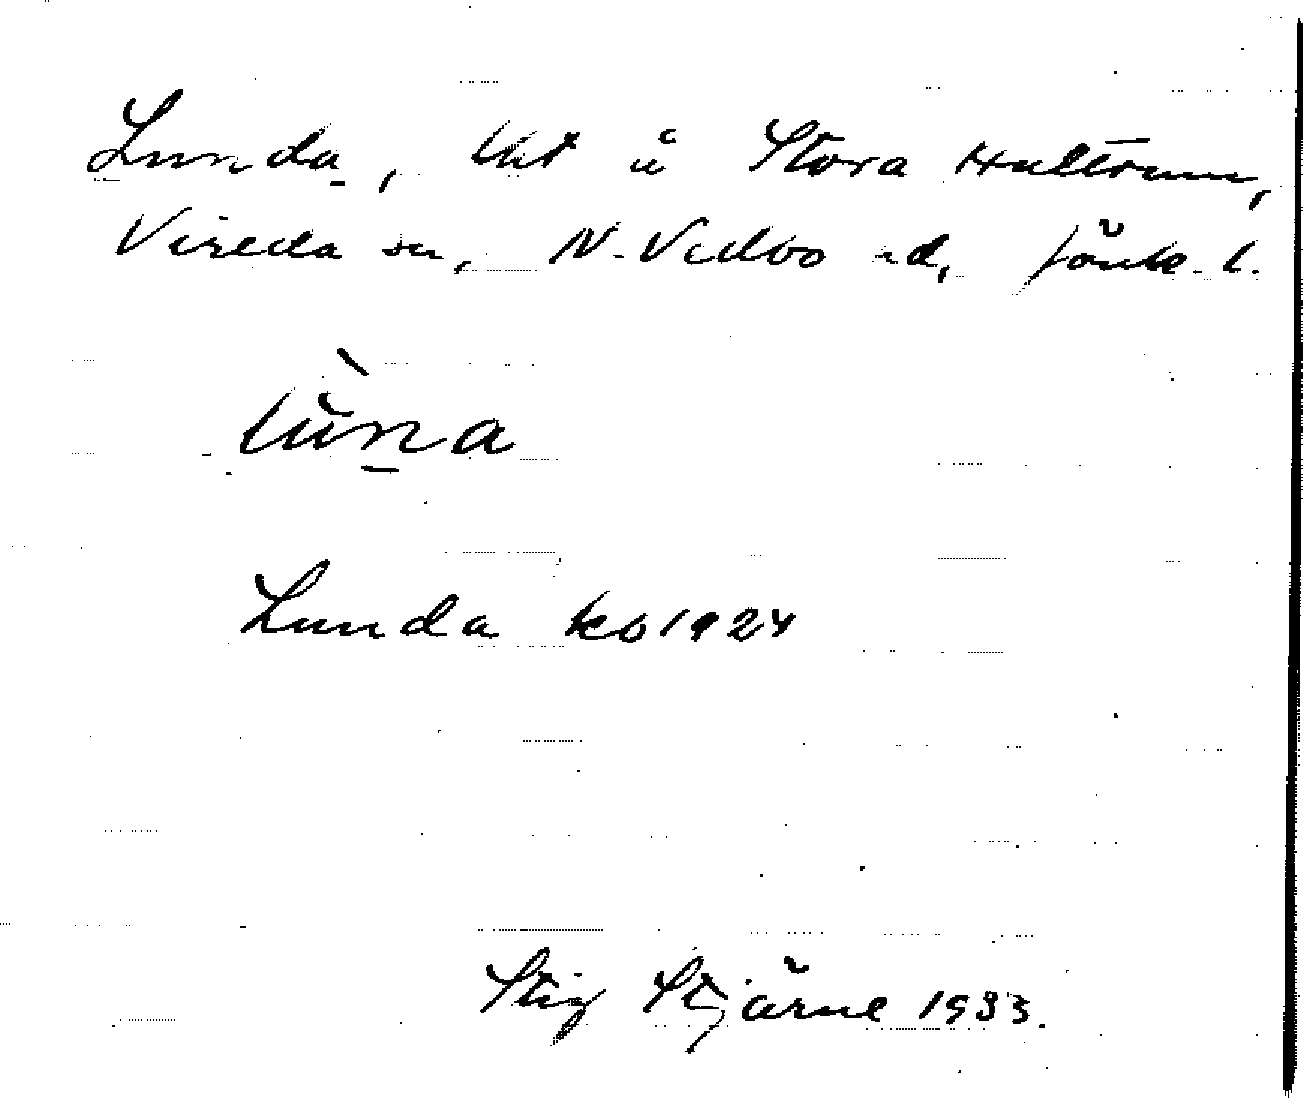 Lunda, lht å Stora Hultrum,
Vireda sn, N. Vedbo hd, Jönk. l.
lùna
Lunda ks 1924
Stig Stjärne 1933.